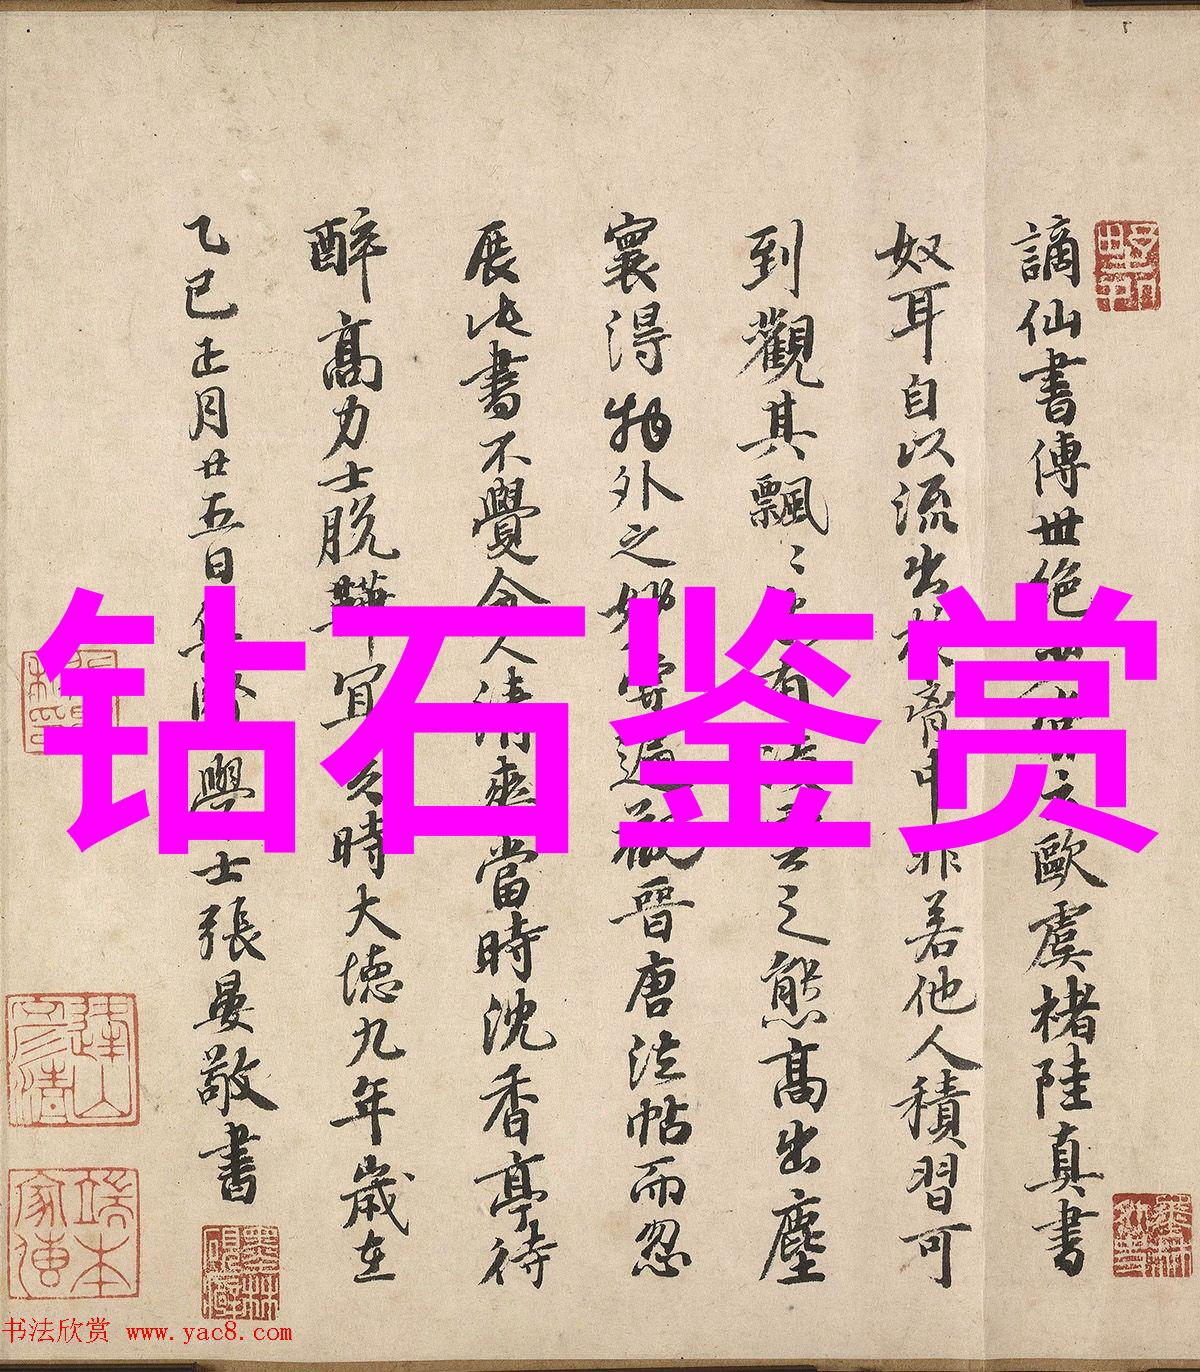 謫仙書傳世絕
歐虞褚陸真書
奴耳自以流出於
中非若他人積習可
到觀其飄〻
有
之態高出塵
寰得物外之妙
遍觀晉唐法帖而忽
展此書不覺令人清爽當時沈香亭待
醉高力士脫鞾宜
時大德九年歲在
乙巳正月廿五日集賢學士張晏敬書
钻石鉴赏
书法欣赏 www.yac8.com